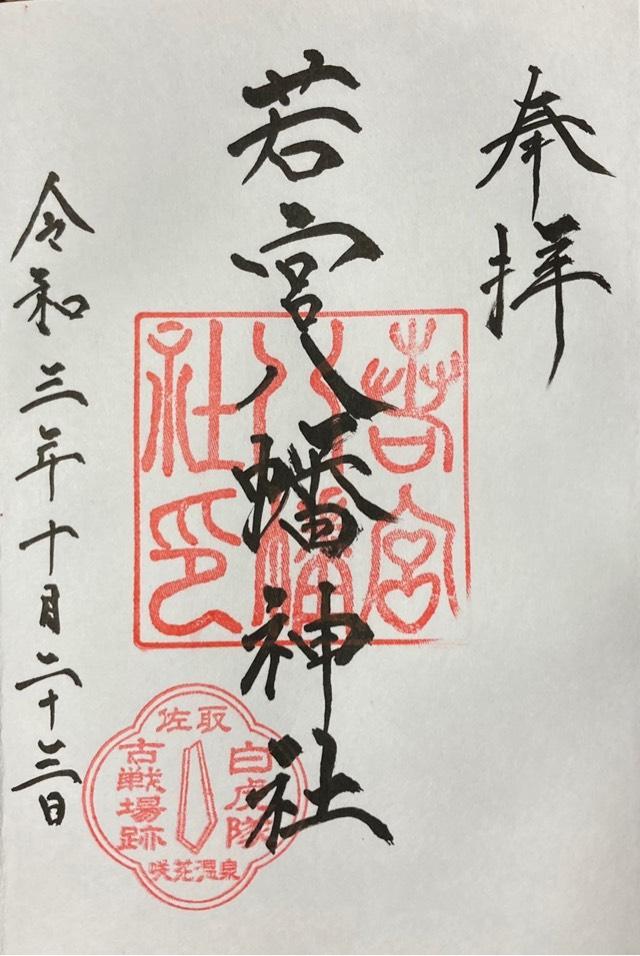 奉拝
若宮八幡神社
令和三年十月二十三日
若宮
八幡神
社印
佐取
白虎隊
古戦場跡
咲花温泉